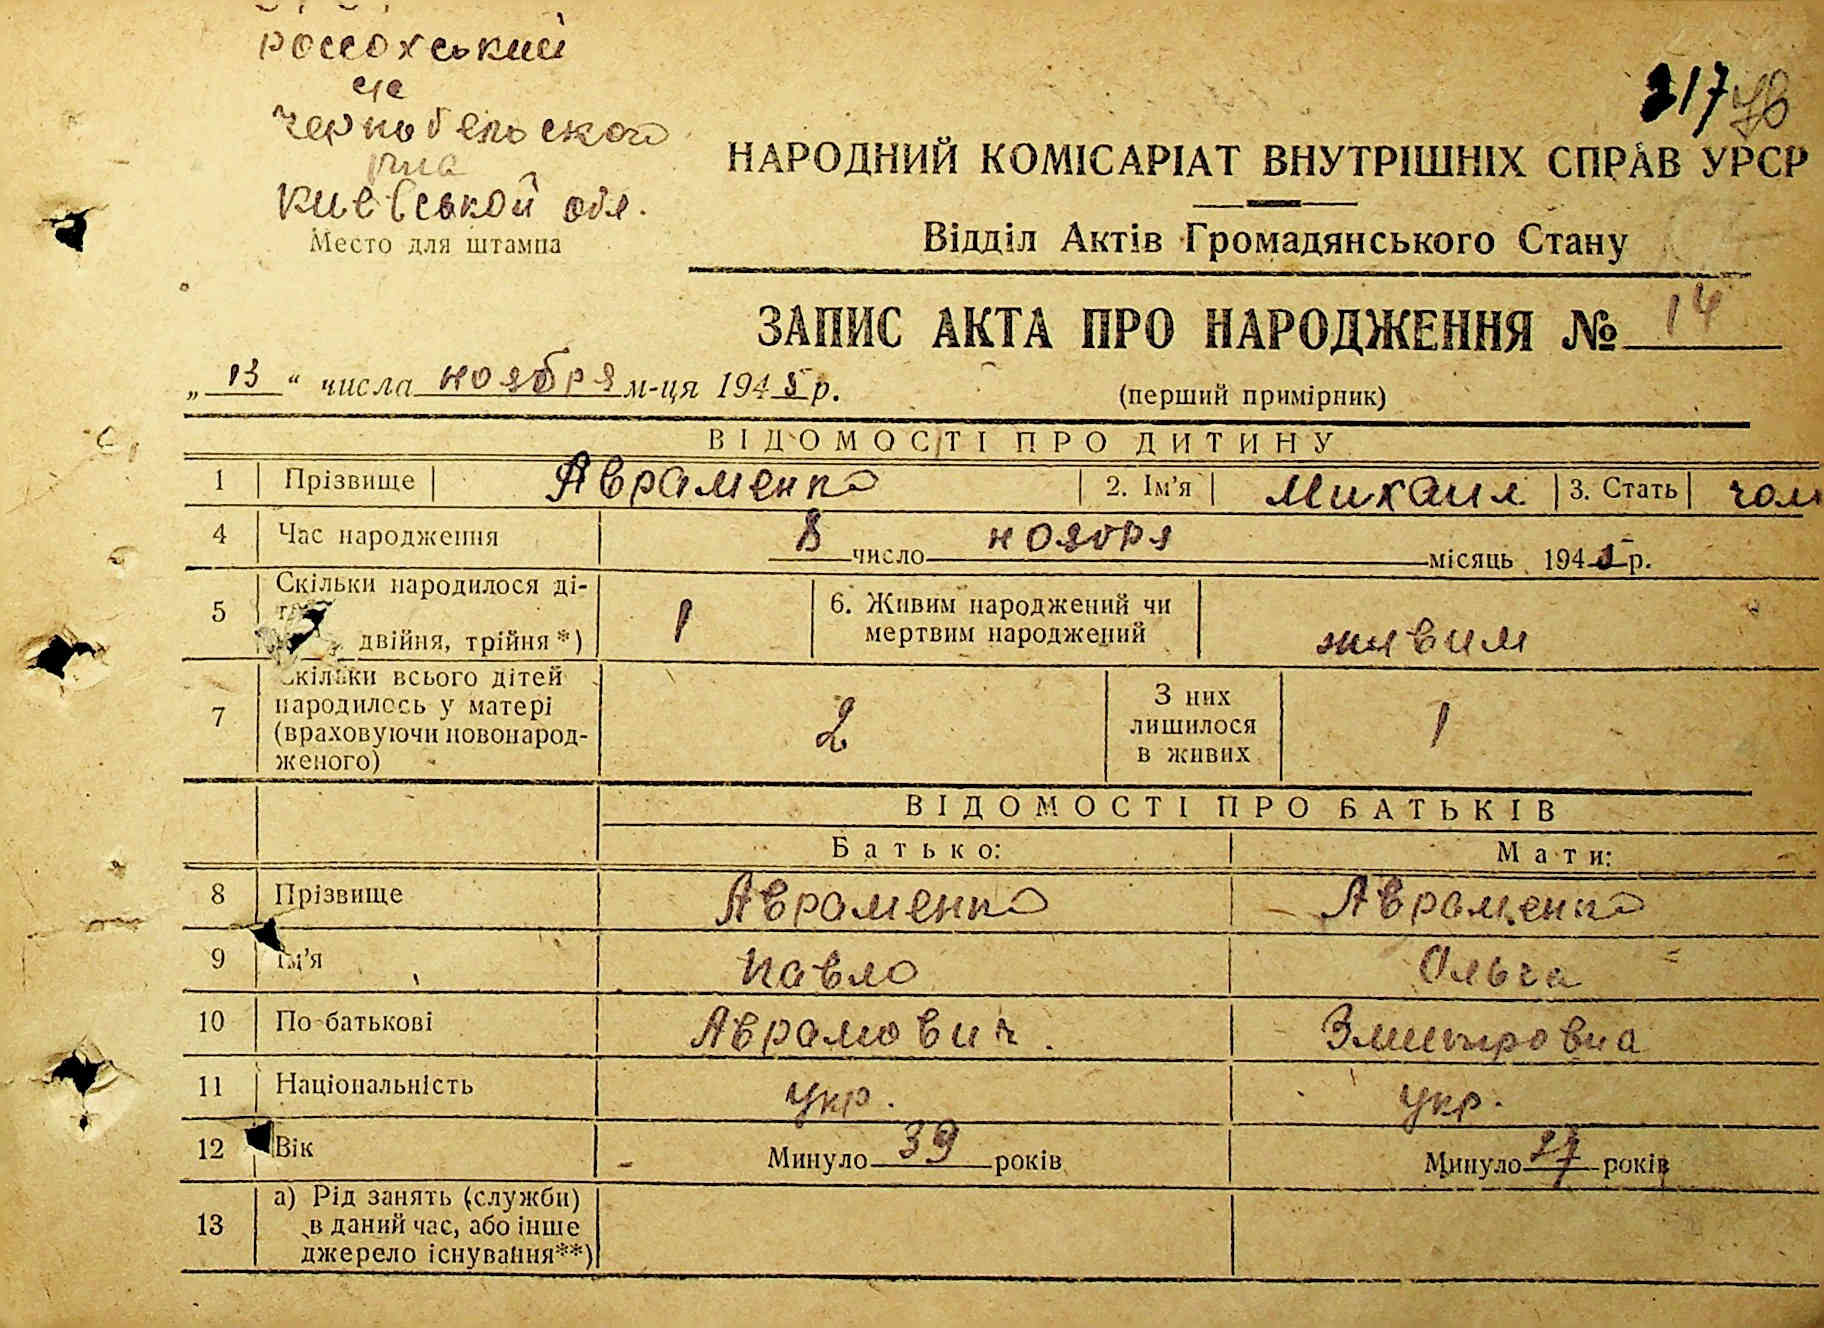 россохський
с/с
Чернобельского
р-на
Киевськой обл.
Место для штампа
217
НАРОДНИЙ КОМІСАРІАТ ВНУТРІШНІХ СПРАВ УРСР
Відділ Актів Громадянського Стану
ЗАПИС АКТА ПРО НАРОДЖЕННЯ № 14
„ 13 “ числа ноября м-ця 1945 р.
(перший примірник)
ВІДОМОСТІ ПРО ДИТИНУ
1 Прізвище Авраменко 2. Ім’я Михаил 3. Стать чол
4 Час народження 8 число ноября місяць 1945 р.
5 Скільки народилося ді-
двійня, трійня*) 1
6. Живим народжений чи
мертвим народжений живим
7 Скільки всього дітей
народилось у матері
(враховуючи новонарод-
женого) 2
З них
лишилося
в живих 1
ВІДОМОСТІ ПРО БАТЬКІВ
Батько: Мати:
8 Прізвище Авраменко Авраменко
9 Ім’я Павло Ольга
10 По-батькові Аврамович. Змитровна
11 Національність укр. укр.
12 Вік Минуло 39 років Минуло 27 років
13 а) Рід занять (служби)
в даний час, або інше
джерело існування**)